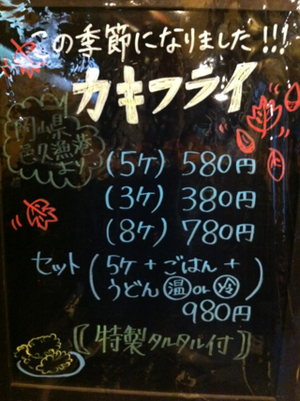 この季節になりました!!!
カキフライ
岡山県
邑久漁港
より
(5ケ) 580円
(3ケ) 380円
(8ケ) 780円
セット(5ケ+ごはん+
うどん温or冷)
980円
〘特製タルタル付〙